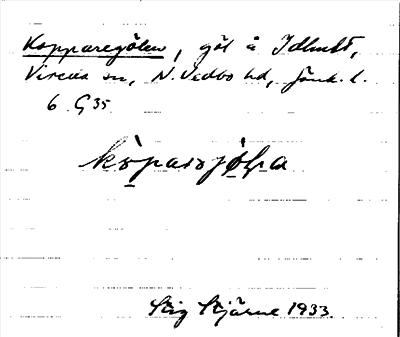 Kopparegölen, göl å Idhult,
Vireda sn, N. Vedbo hd, Jönk. l.
6 G 35
kòparəjøḷa
Stig Stjärne 1933.